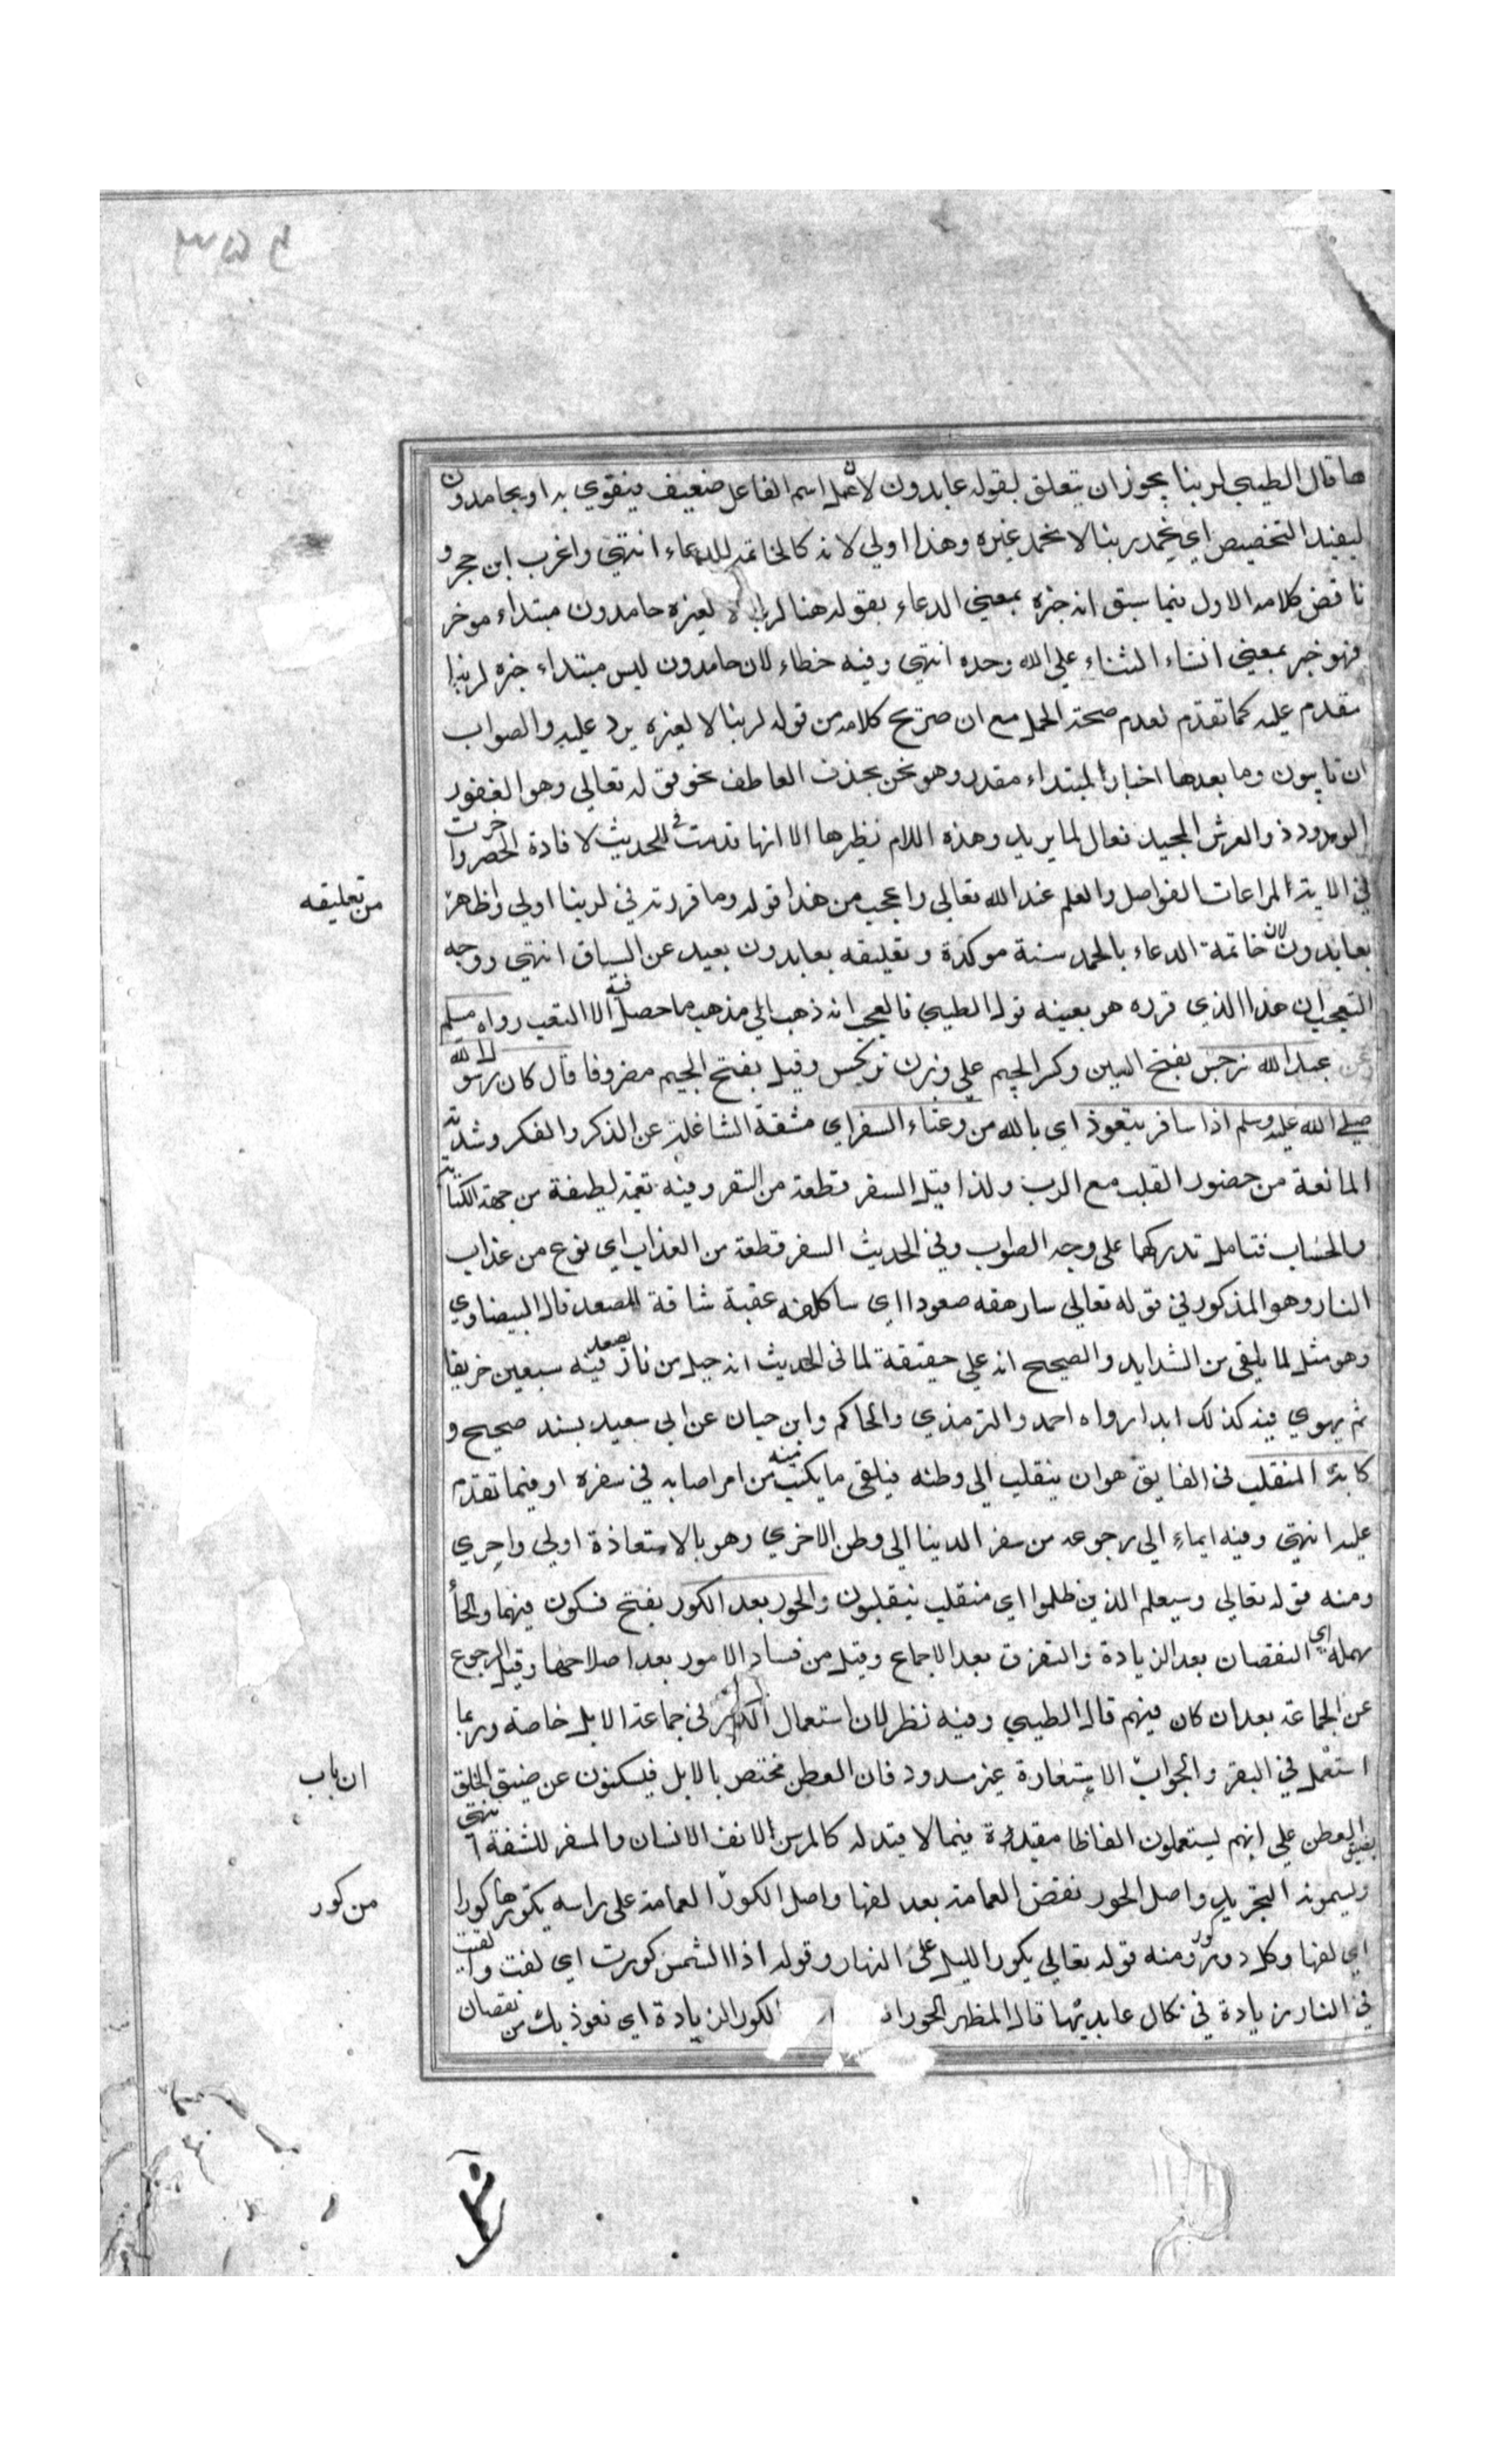 ها قال الطيبي لربنا يجوز ان يتعلق بقوله عابدون لان عمل اسم الفاعل ضعيف فيتقوي به او بحامدون
ليفيد التخصيص اي نحمد ربنا لا نحمد غيره وهذا اولي لانه كالخاتمة للدعاء انتهي واغرب ابن حجر و
ناقض كلامه الاول فيما سبق انه خبره بمعني الدعاء بقوله هنا لربنا لا لغيره حامدون مبتداء موخر
فهو خبر بمعني انشاء الثناء علي الله وحده انتهي وفيه خطاء لان حامدون ليس مبتداء خبره لربنا
مقدم عليه كما تقدم لعدم صحة الحمل مع ان صريح كلامه من قوله لربنا لا لغيره يرد عليه والصواب
ان تايبون وما بعدها اخبار لمبتداء مقدر وهو نحن بحذف العاطف نحو قوله تعالي وهو الغفور
الودود ذو العرش المجيد فعال لما يريد وهذه اللام نظيرها الا انها قدمت في الحديث لافادة الحصر واخرت
في الاية لمراعات الفواصل والعلم عند الله تعالي واعجب من هذا قوله وما قررته في لربنا اولي وظاهر
من تعليقه
بعابدون لان خاتمة الدعاء بالحمد سنة موكدة وتعليقه بعابدون بعيد عن السياق انتهي ووجه
التعجب ان هذا الذي قرره هو بعينه قول الطيبي فالعجب انه ذهب الي مذهب ما حصل فيه الا التعب رواه مسلم
وعن عبد الله سرجس بفتح السين وكسر الجيم علي وزن نرجس وقيل بفتح الجيم مصروفا قال كان رسول الله
صلي الله عليه وسلم اذا سافر يتعوذ اي بالله من وعثاء السفر اي مشقة الشاغلة عن الذكر والفكر وشدته
المانعة من حضور القلب مع الرب ولذا قيل السفر قطعة من السقر وفيه نقمة لطيفة من جهة الكتابة
والحساب فتامل تدركها علي وجه الصواب وفي الحديث السفر قطعة من العذاب اي نوع من عذاب
النار وهو المذكور في قوله تعالي سارهقه صعودا اي ساكلفه عقبة شاقة المصعد قال البيضاوي
وهو مثل لما يلقي من الشدايد والصحيح انه علي حقيقة لما في الحديث انه جبل من نار يصعد فيه سبعين خريفا
ثم يهوي فيه كذلك ابدا رواه احمد والترمذي والحاكم وابن حبان عن ابي سعيد بسند صحيح و
كابة المنقلب في الفايق هو ان ينقلب الي وطنه فيلقي ما يكتئب منه من امر اصابه في سفره او فيما تقدم
عليه انتهي وفيه ايماء الي رجوعه من سفر الدنيا الي وطن الاخري وهو بالاستعاذة اولي واحري
ومنه قوله تعالي وسيعلم الذين ظلموا اي منقلب ينقلبون والحور بعد الكور بفتح فسكون فيهما والحا
مهملة اي النقصان بعد الزيادة والتفرق بعد الاجماع وقيل من فساد الامور بعد اصلاحها وقيل الرجوع
عن الجماعة بعد ان كان فيهم قال الطيبي وفيه نظر لان استعمال الكور في جماعة الابل خاصة وربما
استعمل في البقر والجواب الاستعارة غير مسدود فان العطن مختص بالابل فيكنون عن ضيق الخلق
ان باب
بضيق العطن علي انهم يستعملون الفاظا مقيدة فيما لا قيد له كالمرسن لانف الانسان والمسفر للشفة انتهي
ويسمونه التجريد واصل الحور نقض العمامة بعد لفها واصل الكور العمامة علي راسه يكورها كورا
من كور
اي لفها وكل دور كور ومنه قوله تعالي يكور الليل علي النهار وقوله اذا الشمس كورت اي لفت والقيت
في النار زيادة في نكال عابديها قال المظهر الحور الكور الزيادة اي نعوذ بك من نقصان